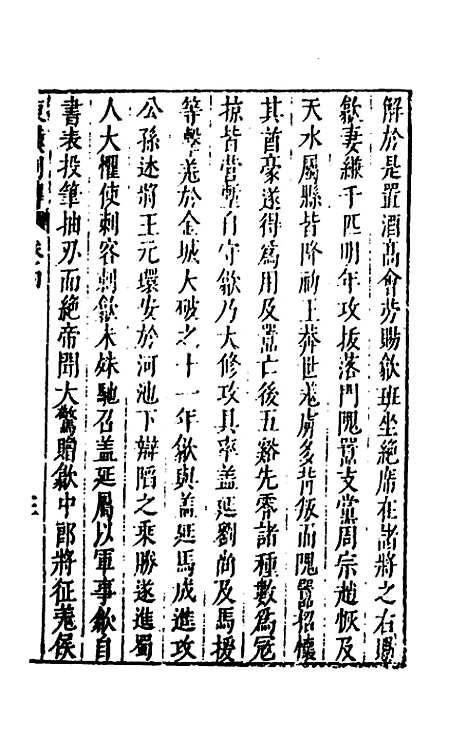 解於是置酒高會勞賜歙班坐絶席在諸將之右賜
歙妻縑千匹明年攻拔落門隗囂支黨周宗趙恢及
天水屬縣皆降初王莽世羌虜多背叛而隗囂招懷
其酋豪遂得爲用及囂亡後五谿先零諸種數爲冦
掠皆營塹自守歙乃大修攻具率盖延劉尚及馬援
等擊羌於金城大破之十一年歙與盖延馬成進攻
公孫述將王元環安於河池下辯䧟之乘勝遂進蜀
人大懼使刺客刺歙未殊馳召盖延屬以軍事歙自
書表投筆抽刃而絶帝聞大驚贈歙中郎將征羌侯
東漢 卷十四
三